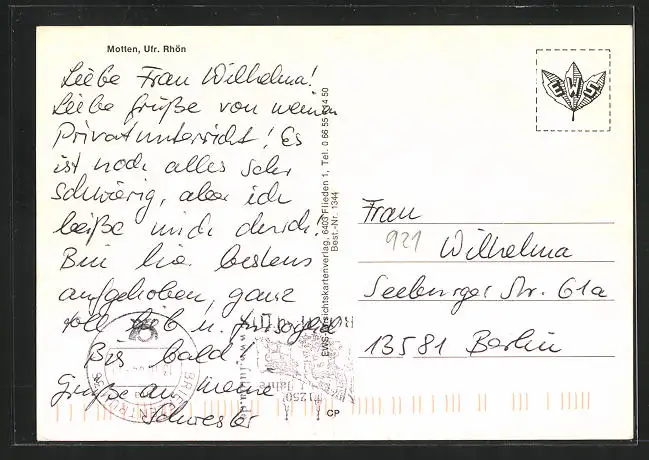 Motten, Ufr. Rhön
Liebe Frau Wilhelma!
Liebe Grüße von meinem
Privatunterricht! Es
ist noch alles sehr
schwierig, aber ich
beiße mich durch!
Bin hier bestens
aufgehoben, ganz
toll lieb u. fürsorglich
Bis bald!
Grüße an meine
Schwester
EWS Ansichtskartenverlag, 6403 Flieden 1, Tel. 0 66 55
Best.-Nr. 1344
EWS
Frau
921
Wilhelma
Seeburger Str. 61a
13581 Berlin
1250
Jahre
BRIEFZENTRUM
CP